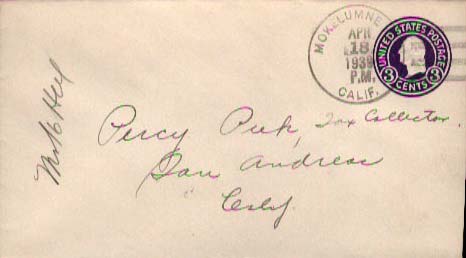 MOKELUMNE
APR
18
1939
P.M.
CALIF.
UNITED STATES POSTAGE
3 3
CENTS
Percy Peek, Tax Collector.
San Andreas
Calif